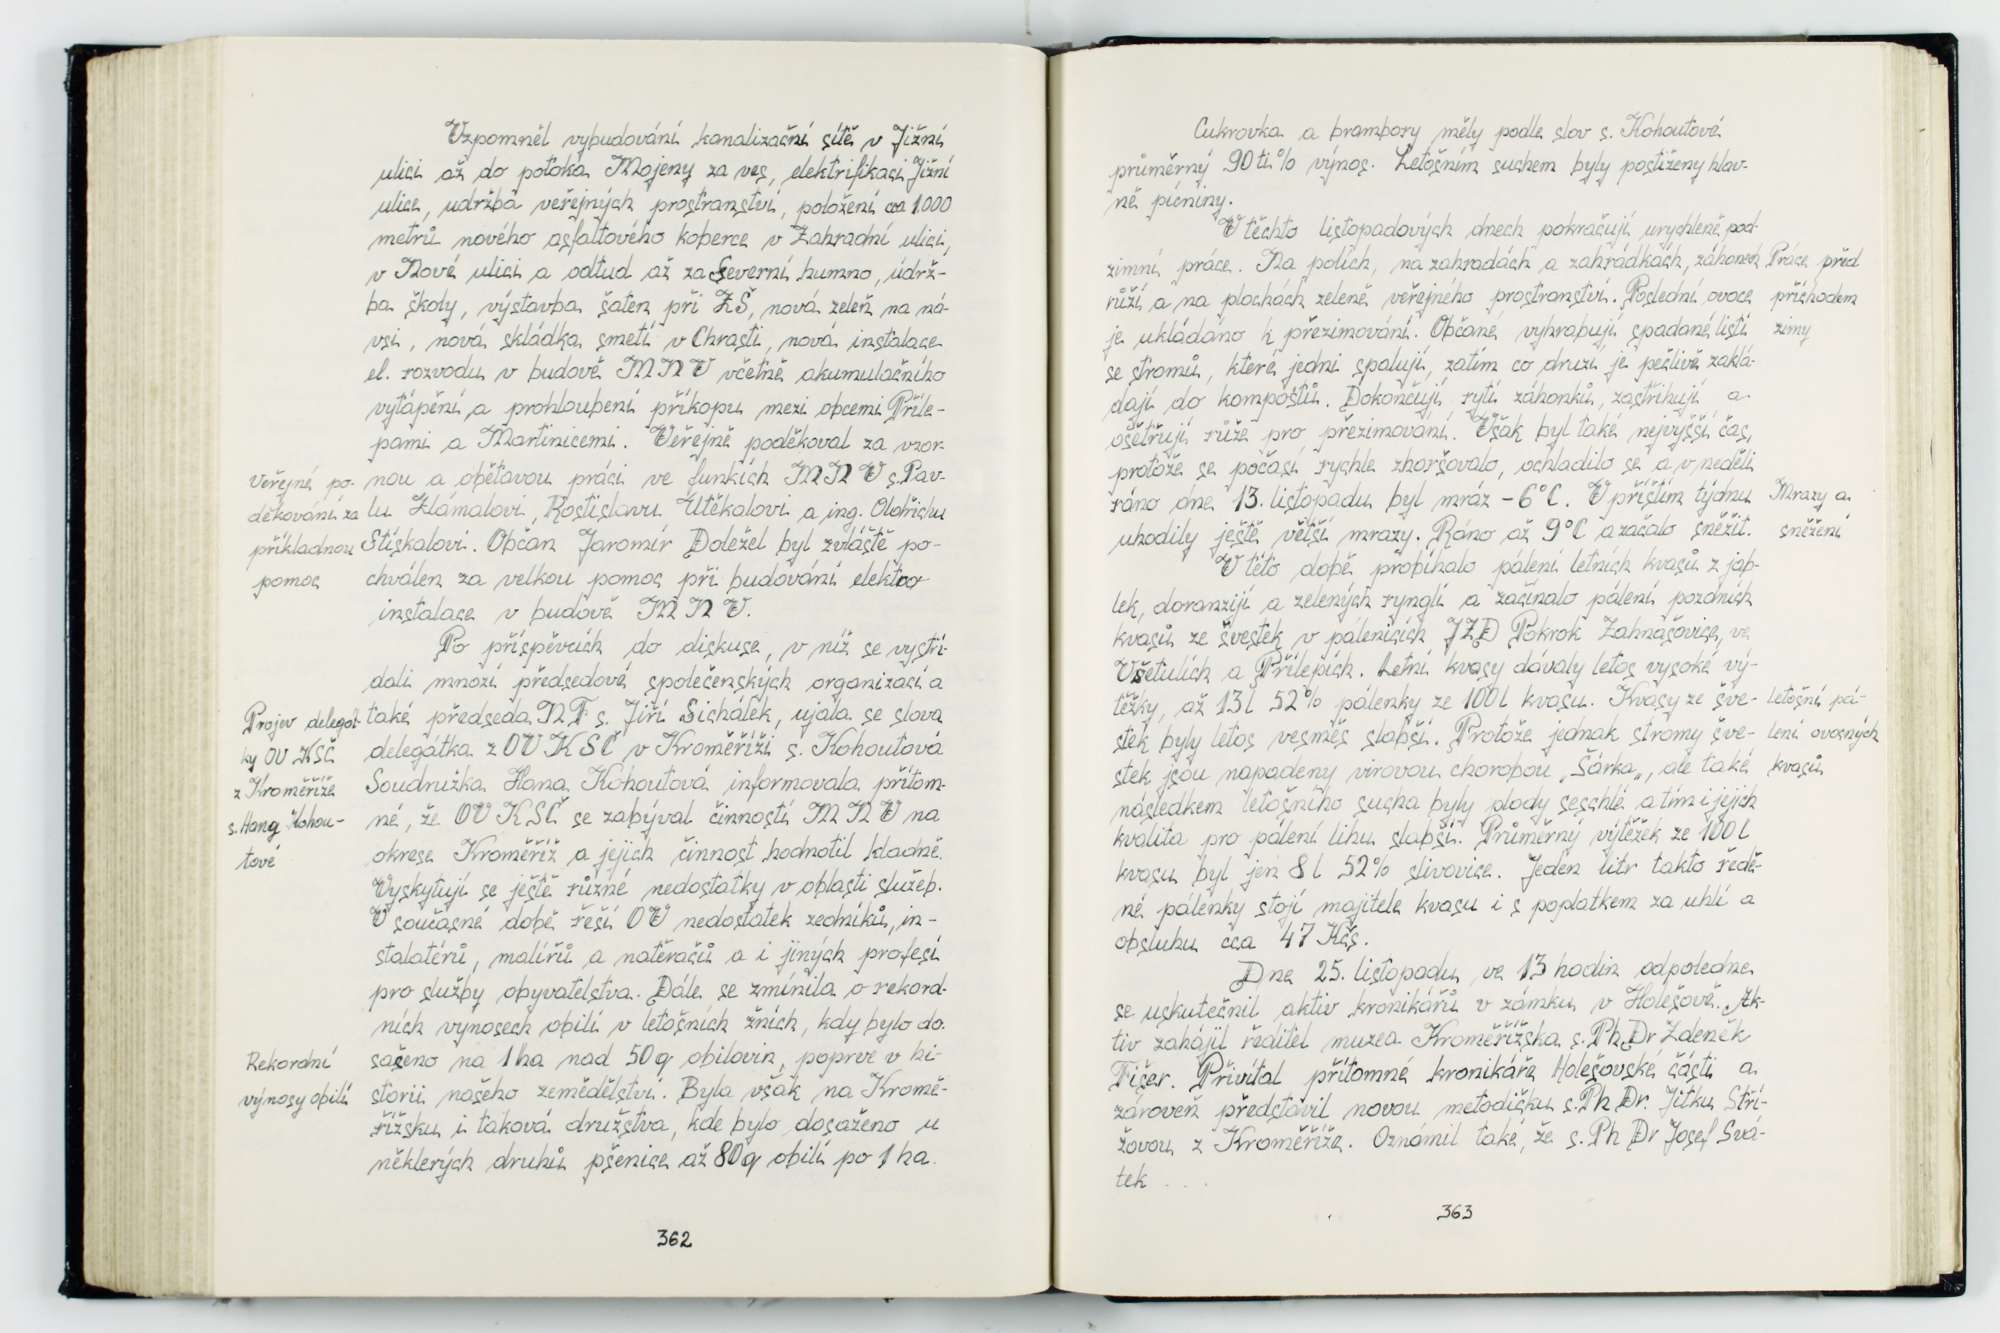 Vzpomněl vybudování kanalizační sítě v Jižní
ulici až do potoka Mojeny za ves, elektrifikaci Jižní
ulice, údržba veřejných prostranství, položení cca 1.000
metrů nového asfaltového koberce v Zahradní ulici,
v Nové ulici a odtud až za Severní humno, údrž-
ba školy, výstavba šaten při ZŠ, nová zeleň na ná-
vsi, nová skládka smetí v Chrasti, nová instalace
el. rozvodu v budově MNV včetně akumulačního
vytápění a prohloubení příkopu mezi obcemi Příle-
pami a Martinicemi. Veřejně poděkoval za vzor-
nou a obětavou práci ve funkcích MNV s. Pav-
lu Zlámalovi, Rostislavu Utěkalovi a ing. Oldřichu
Stískalovi. Občan Jaromír Doležel byl zvláště po-
chválen za velkou pomoc při budování elektro-
instalace v budově MNV.
Veřejné po-
děkování za
příkladnou
pomoc
Po příspěvcích do diskuse, v níž se vystří-
dali mnozí předsedové společenských organizací a
také předseda NF s. Jiří Sichálek, ujala se slova
delegátka z OV KSČ v Kroměříži s. Kohoutová
Soudružka Hana Kohoutová informovala přítom-
né, že OV KSČ se zabýval činností MNV na
okrese Kroměříž a jejich činnost hodnotil kladně.
Vyskytují se ještě různé nedostatky v oblasti služeb.
V současné době řeší OV nedostatek zedníků, in-
stalatérů, malířů a natěračů a i jiných profesí
pro služby obyvatelstva. Dále se zmínila o rekord-
ních výnosech obilí v letošních žních, kdy bylo do-
saženo na 1 ha nad 50 q obilovin, poprve v hi-
storii našeho zemědělství. Byla však na Kromě-
řížsku i taková družstva, kde bylo dosaženo u
některých druhů pšenice až 80 q obilí po 1 ha.
Projev delegát-
ky OV KSČ
z Kroměříže
s. Hany Kohou-
tové
Rekordní
výnosy obilí
362
Cukrovka a brambory měly podle slov s. Kohoutové
průměrný 90ti % výnos. Letošním suchem byly postiženy hlav-
ně pícniny.
V těchto listopadových dnech pokračují urychleně pod-
zimní práce. Na polích, na zahradách a zahrádkách, záhonech
růží a na plochách zeleně veřejného prostranství. Poslední ovoce
je ukládáno k přezimování. Občané vyhrabují spadané listí
se stromů, které jedni spalují, zatím co druzí je pečlivě zaklá-
dají do kompostů. Dokončují rytí záhonků, zastřihují a
ošetřují růže pro přezimování. Však byl také nejvyšší čas,
protože se počasí rychle zhoršovalo, ochladilo se a v neděli
ráno dne 13. listopadu byl mráz -6°C. V příštím týdnu
uhodily ještě větší mrazy. Ráno až 9°C a začalo sněžit.
Práce před
příchodem
zimy
Mrazy a
sněžení
V této době probíhalo pálení letních kvasů z jab-
lek, doranzijí a zelených rynglí a začínalo pálení pozdních
kvasů ze švestek v pálenicích JZD Pokrok Zahnašovice, ve
Všetulích a Přílepích. Letní kvasy dávaly letos vysoké vý-
těžky, až 13 l 52% pálenky ze 100 l kvasu. Kvasy ze šve-
stek byly letos vesměs slabší. Protože jednak stromy šve-
stek jsou napadeny virovou chorobou „Šárka„, ale také
následkem letošního sucha byly plody seschlé a tím i jejich
kvalita pro pálení lihu slabší. Průměrný výtěžek ze 100 l
kvasu byl jen 8 l 52% slivovice. Jeden litr takto ředě-
né pálenky stojí majitele kvasu i s poplatkem za uhlí a
obsluhu cca 47 Kčs.
letošní pá-
lení ovocných
kvasů
Dne 25. listopadu ve 13 hodin odpoledne
se uskutečnil aktiv kronikářů v zámku v Holešově. Ak-
tiv zahájil ředitel muzea Kroměřížska s. PhDr Zdeněk
Fišer. Přivítal přítomné kronikáře Holešovské části a
zároveň představil novou metodičku s. PhDr. Jitku Stří-
žovou z Kroměříže. Oznámil také, že s. PhDr Josef Svá-
tek ...
363